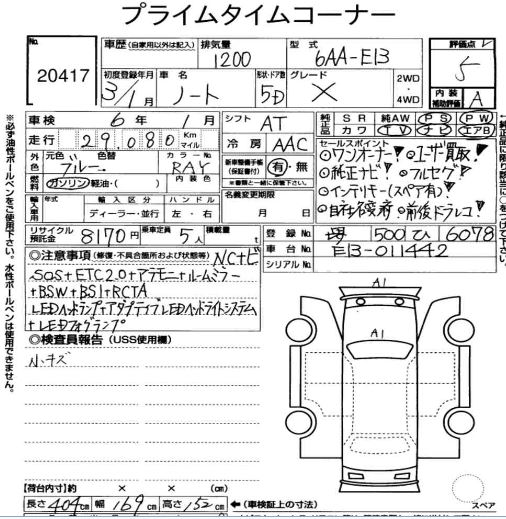 プライムタイムコーナー
No. 20417
車歴 (自家用以外は記入)
排気量 1200
型式 6AA-E13
評価点 5
初度登録年月 3/1月
車名 ノート
形状・ドア数 5D
グレード X
2WD・4WD
内装補助評価 A
車検 6年1月
シフト AT
走行 29,080 Km マイル
冷房 AAC
純正品 SR 純AW PS PW
カワ TV ナビ エアB
外色 元色 ブルー 色替
カラーNo. RAY
内装色
燃料 ガソリン 軽油・( )
新車整備手帳(保証書付) 有・無
※書類と一緒に保管下さい。
セールスポイント
◎ワンオーナー! ◎ユーザー買取!
◎純正ナビ! ◎フルセグ!
◎インテリキー(スペア有)!
◎自社検済 ◎前後ドラレコ!
輸入車用 年式 輸入区分 ハンドル
ディーラー・並行 左・右
名義変更期限 月 日
リサイクル預託金 8170円
乗車定員 5人
積載量 t
登録No. 500 ひ 6078
車台No. E13-011442
シリアルNo.
◎注意事項 (修復・不具合箇所および状態等) NCナビ
SOS+ETC2.0+アラモニ+ルームミラー
+BSW+BSI+RCTA
LEDヘッドランプ+アダプティブLEDヘッドライトシステム
+LEDフォグランプ
◎検査員報告 (USS使用欄)
小キズ
A1
A1
【荷台内寸】約 × × (cm)
長さ 404cm 幅 169cm 高さ 152cm ←(車検証上の寸法)
スペア
※必ず油性ボールペンをご使用下さい。水性ボールペンは使用できません。